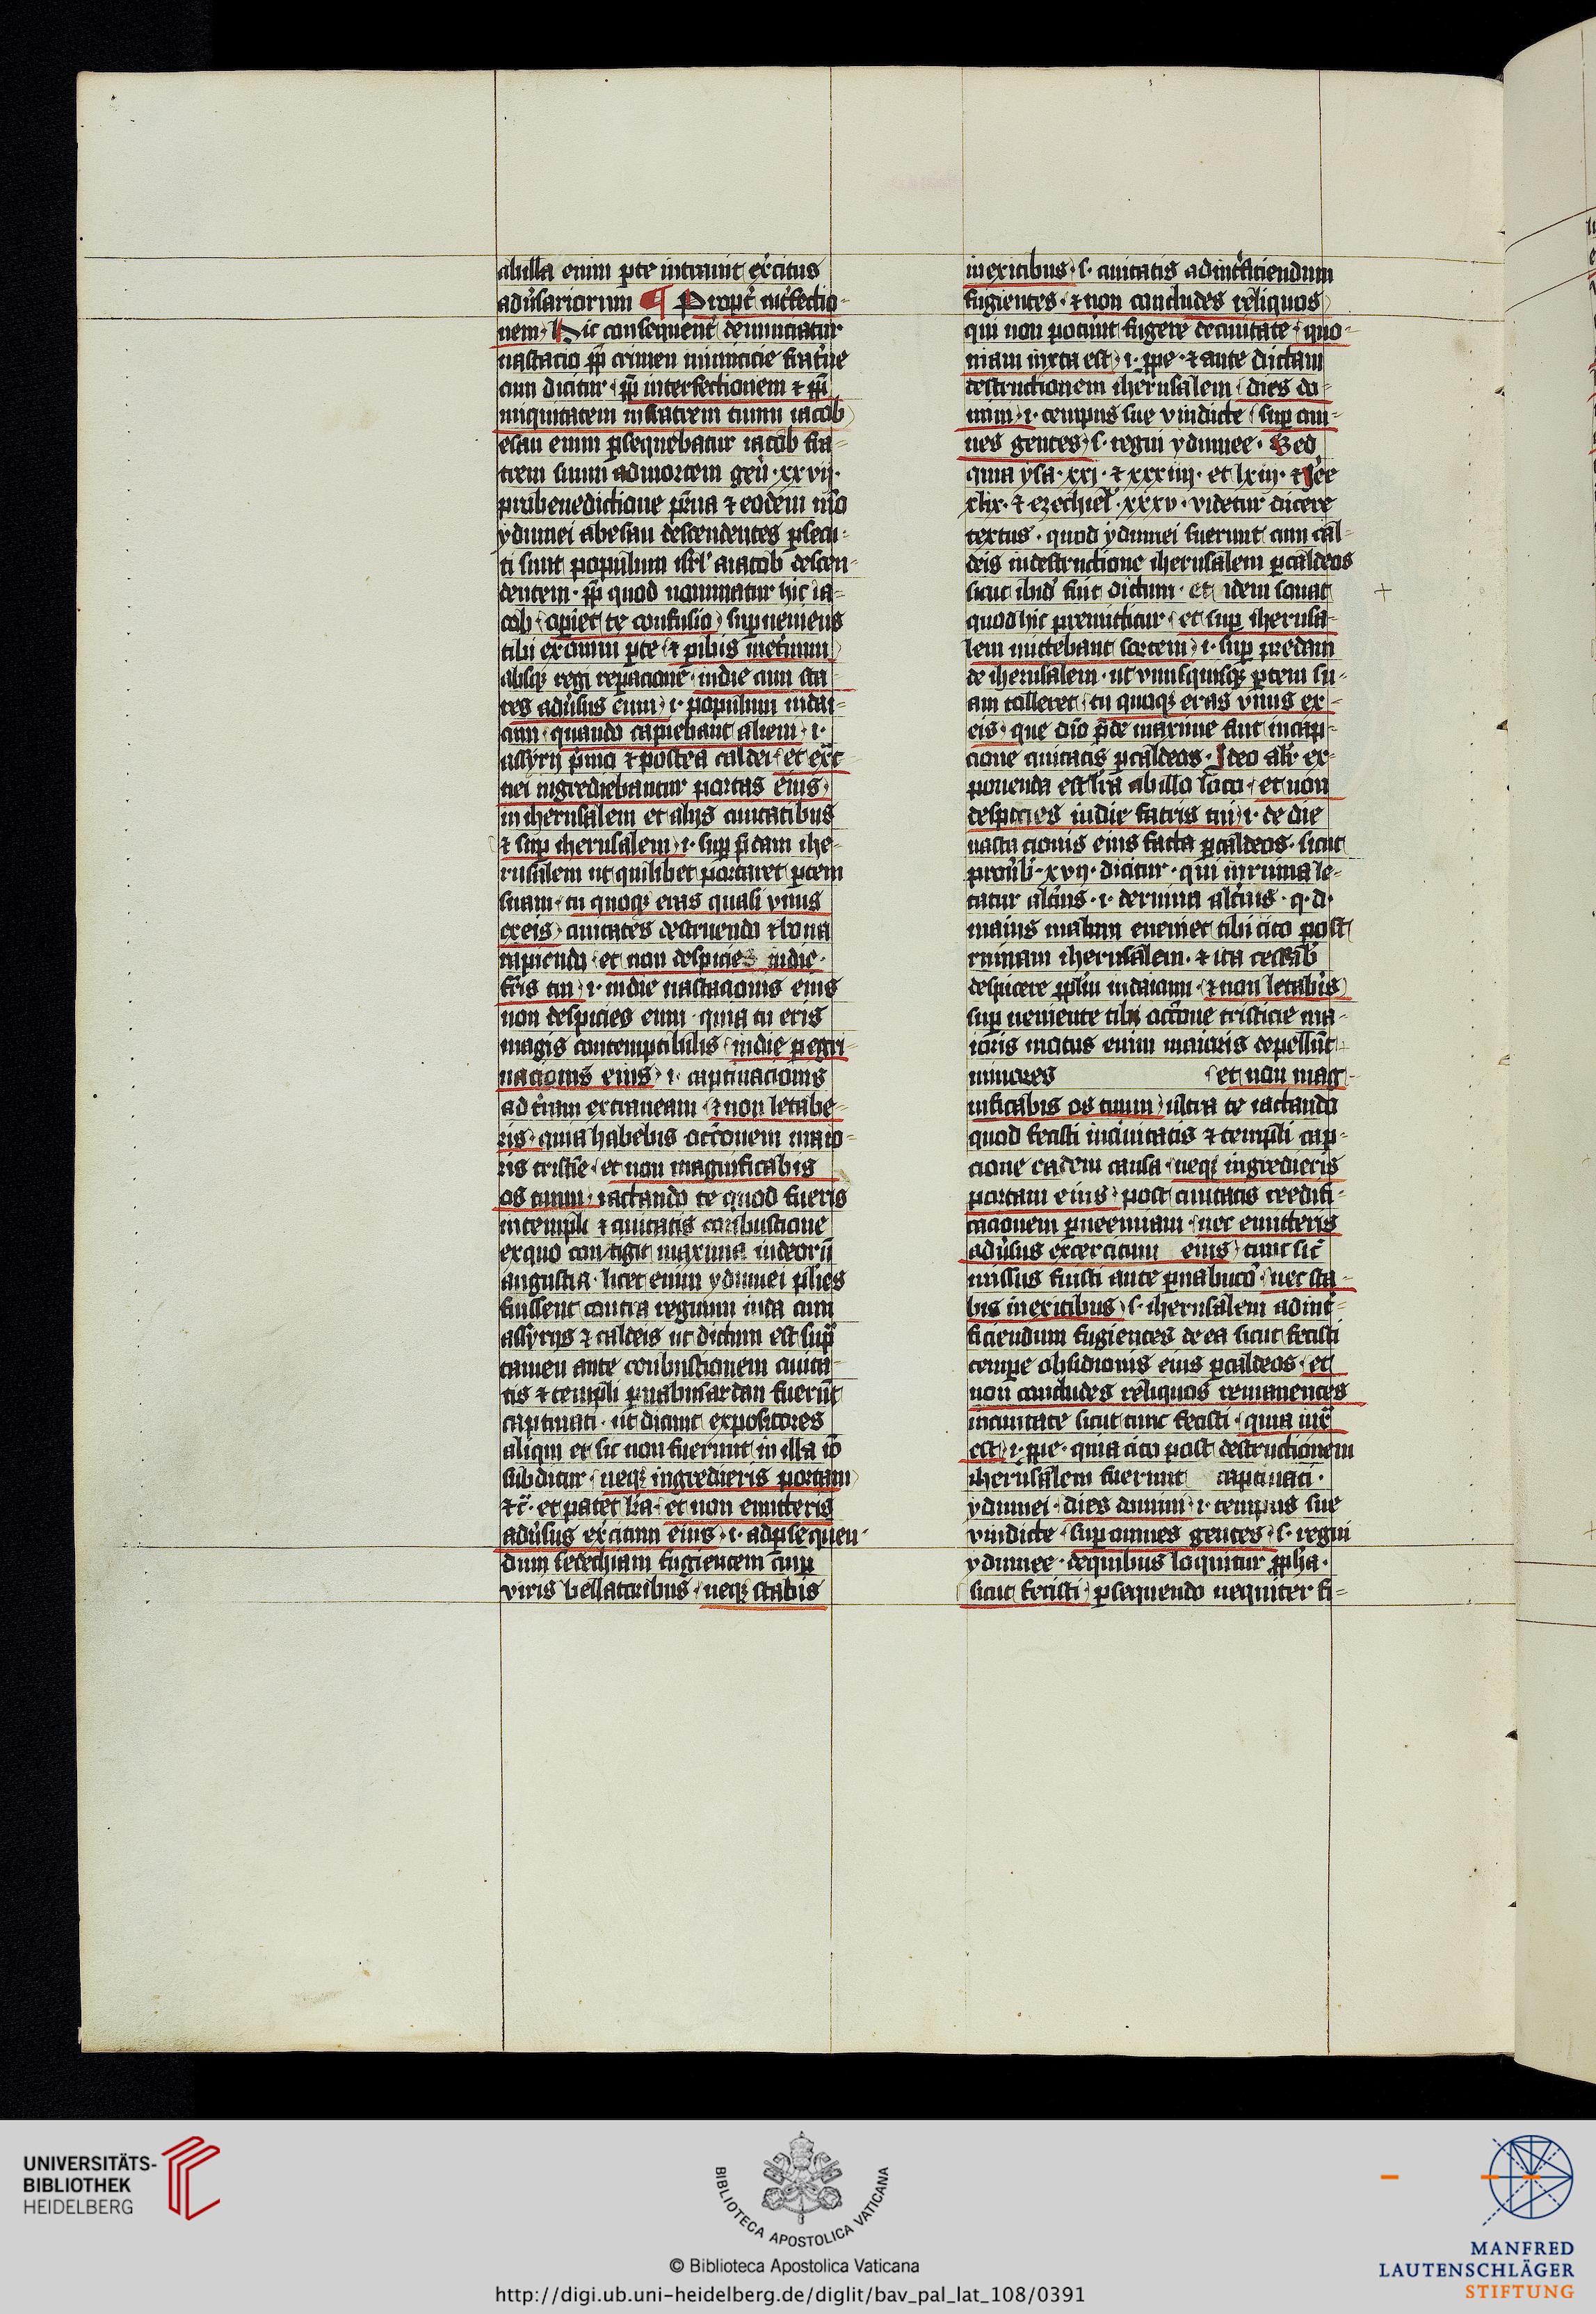 abilla enim pte intrauit exᷓcitus
adũsariorum ¶ Propt̓ int̓fectio-
nem. Hic consequent̓ denunciatur
uastacio ꝓpt̓ crimen inimicicie fratᷓne
cum dicitur ꝓpt̓ interfectionem ⁊ ꝓpt̓
iniquitatem in fratrem tuum iacob
esau enim ꝑsequebatur iacob fra-
trem suum ad mortem gen̄. xxvij.
benedictione ꝑᷓna ⁊ eodem mᵒ
ydumei ab esau descendentes ꝑsecu-
ti sunt populum isrl̓ a iacob descen-
dentem. ꝓpt̓ quod nominatur hic ia-
cob oꝑiet te confusio sup ueniens
tibi ex omni ꝑte ⁊ ꝑibis inet̓num
absqꝫ regni reꝑacione in die cum sta-
res adũsus eum .i. populum iudai-
cum quando capiebant alieni .i.
assyrij pͥmo ⁊ postea caldei et ext̓-
nei ingrediebantur portas eius
in iherusalem et alijs ciuitatibus
⁊ suꝑ iherusalem .i. suꝑ p̄dam ihe-
rusalem ut quilibet portaret ꝑtem
suam tu quoqꝫ eras quasi vnus
ex eis ciuitates destruendo ⁊ bona
rapiendo et non despicies in die
fr̄is tui .i. in die uastacionis eius
non despicies eum quia tu eris
magis contemptibilis in die ꝑegri-
nacionis eius .i. captiuacionis
ad t̓ram extraneam ⁊ non letabe-
ris quia habebis occōnem maio-
ris tristicie et non magnificabis
os tuum iactando te quod fueris
in templi ⁊ ciuitatis conbustione
ex quo contigit maxima iudeorū
angustia. licet enim ydumei pl̓ies
fuissent contra regnum iuda cum
assyrijs ⁊ caldeis ut dictum est supᷓ
tamen ante conbustionem ciuita-
tis ⁊ templi ꝑ nabusardan fuerūt
captiuati. ut dicunt expositores
aliqui et sic non fuerunt in illa iō
subditur neqꝫ ingredieris portam
⁊c̄. et patet lr̄a et non emitteris
adũsus exᷓcitum eius .i. ad ꝑsequen-
dum sedechiam fugientem cum
viris bellatoribus neqꝫ stabis
in exitibus .s. ciuitatis ad int̓ficiendum
fugientes ⁊ non concludes reliquos
qui non pot̓unt fugere de ciuitate quo-
niam iuxta est .i. ꝓpe ⁊ ante dictam
destructionem iherusalem dies do-
mini .i. tempus sue vindicte suꝑ om-
nes gentes .s. regni ydumee. Sed
quia ysa. xxj. ⁊ xxxiiij. et lxiij. ⁊ Jere
xlix. ⁊ ezechiel̓. xxxv. videtur dicere
textus. quod ydumei fuerunt cum cal-
deis in destructione iherusalem ꝑ caldeos
sicut ibid̓ fuit dictum. et idem sonat
quod hic premittitur et suꝑ iherusa-
lem mittebant sortem .i. suꝑ predam
de iherusalem. ut vnusquisqꝫ ꝑtem su-
am tolleret tu quoqꝫ eras vnus ex
eis que diᵒ p̄de maxime fuit in cap-
cione ciuitatis ꝑ caldeos. Ideo alit̓ ex-
ponenda est lr̄a ab illo loco et non
despicies in die fratris tui .i. de die
uastacionis eius facta ꝑ caldeos. sicut
prouͥb. xvij. dicitur. qui in ruina le-
tatur alt̓ius .i. de ruina alt̓ius. q. d.
maius malum eueniet tibi cito post
ruinam iherusalem. ⁊ ita cessab̓
despicere ppl̄m iudaicum ⁊ non letab̓is
suꝑ ueniente tibi occōne tristicie ma-
ioris motus enim maioris depellūt
minores et non mag-
nificabis os tuum ultra te iactando
quod fecisti in ciuitatis ⁊ templi cap-
cione eadem causa neqꝫ ingredieris
portam eius post ciuitatis reedifi-
cacionem ꝑ neemiam nec emitteris
adũsus excercitum eius tunc sic̄
missus fuisti ante ꝑ nabuco̓ nec sta-
bis in exitibus .s. iherusalem ad int̓-
ficiendum fugientes de ea sicut fecisti
tempe obsidionis eius ꝑ caldeos et
non concludes reliquos remanentes
in ciuitate sicut tunc fecisti quia iuxᷓ
est .i. ꝓpe. quia cito post destructionem
iherusalem fuerunt captiuati.
ydumei. dies domini .i. tempus sue
vindicte suꝑ omnes gentes .s. regni
ydumee. de quibus loquitur ꝓpha.
sicut fecisti ꝑsequendo nequiter fi-
UNIVERSITÄTS-
BIBLIOTHEK
HEIDELBERG
BIBLIOTECA APOSTOLICA VATICANA
© Biblioteca Apostolica Vaticana
http://digi.ub.uni-heidelberg.de/diglit/bav_pal_lat_108/0391
MANFRED
LAUTENSCHLÄGER
STIFTUNG